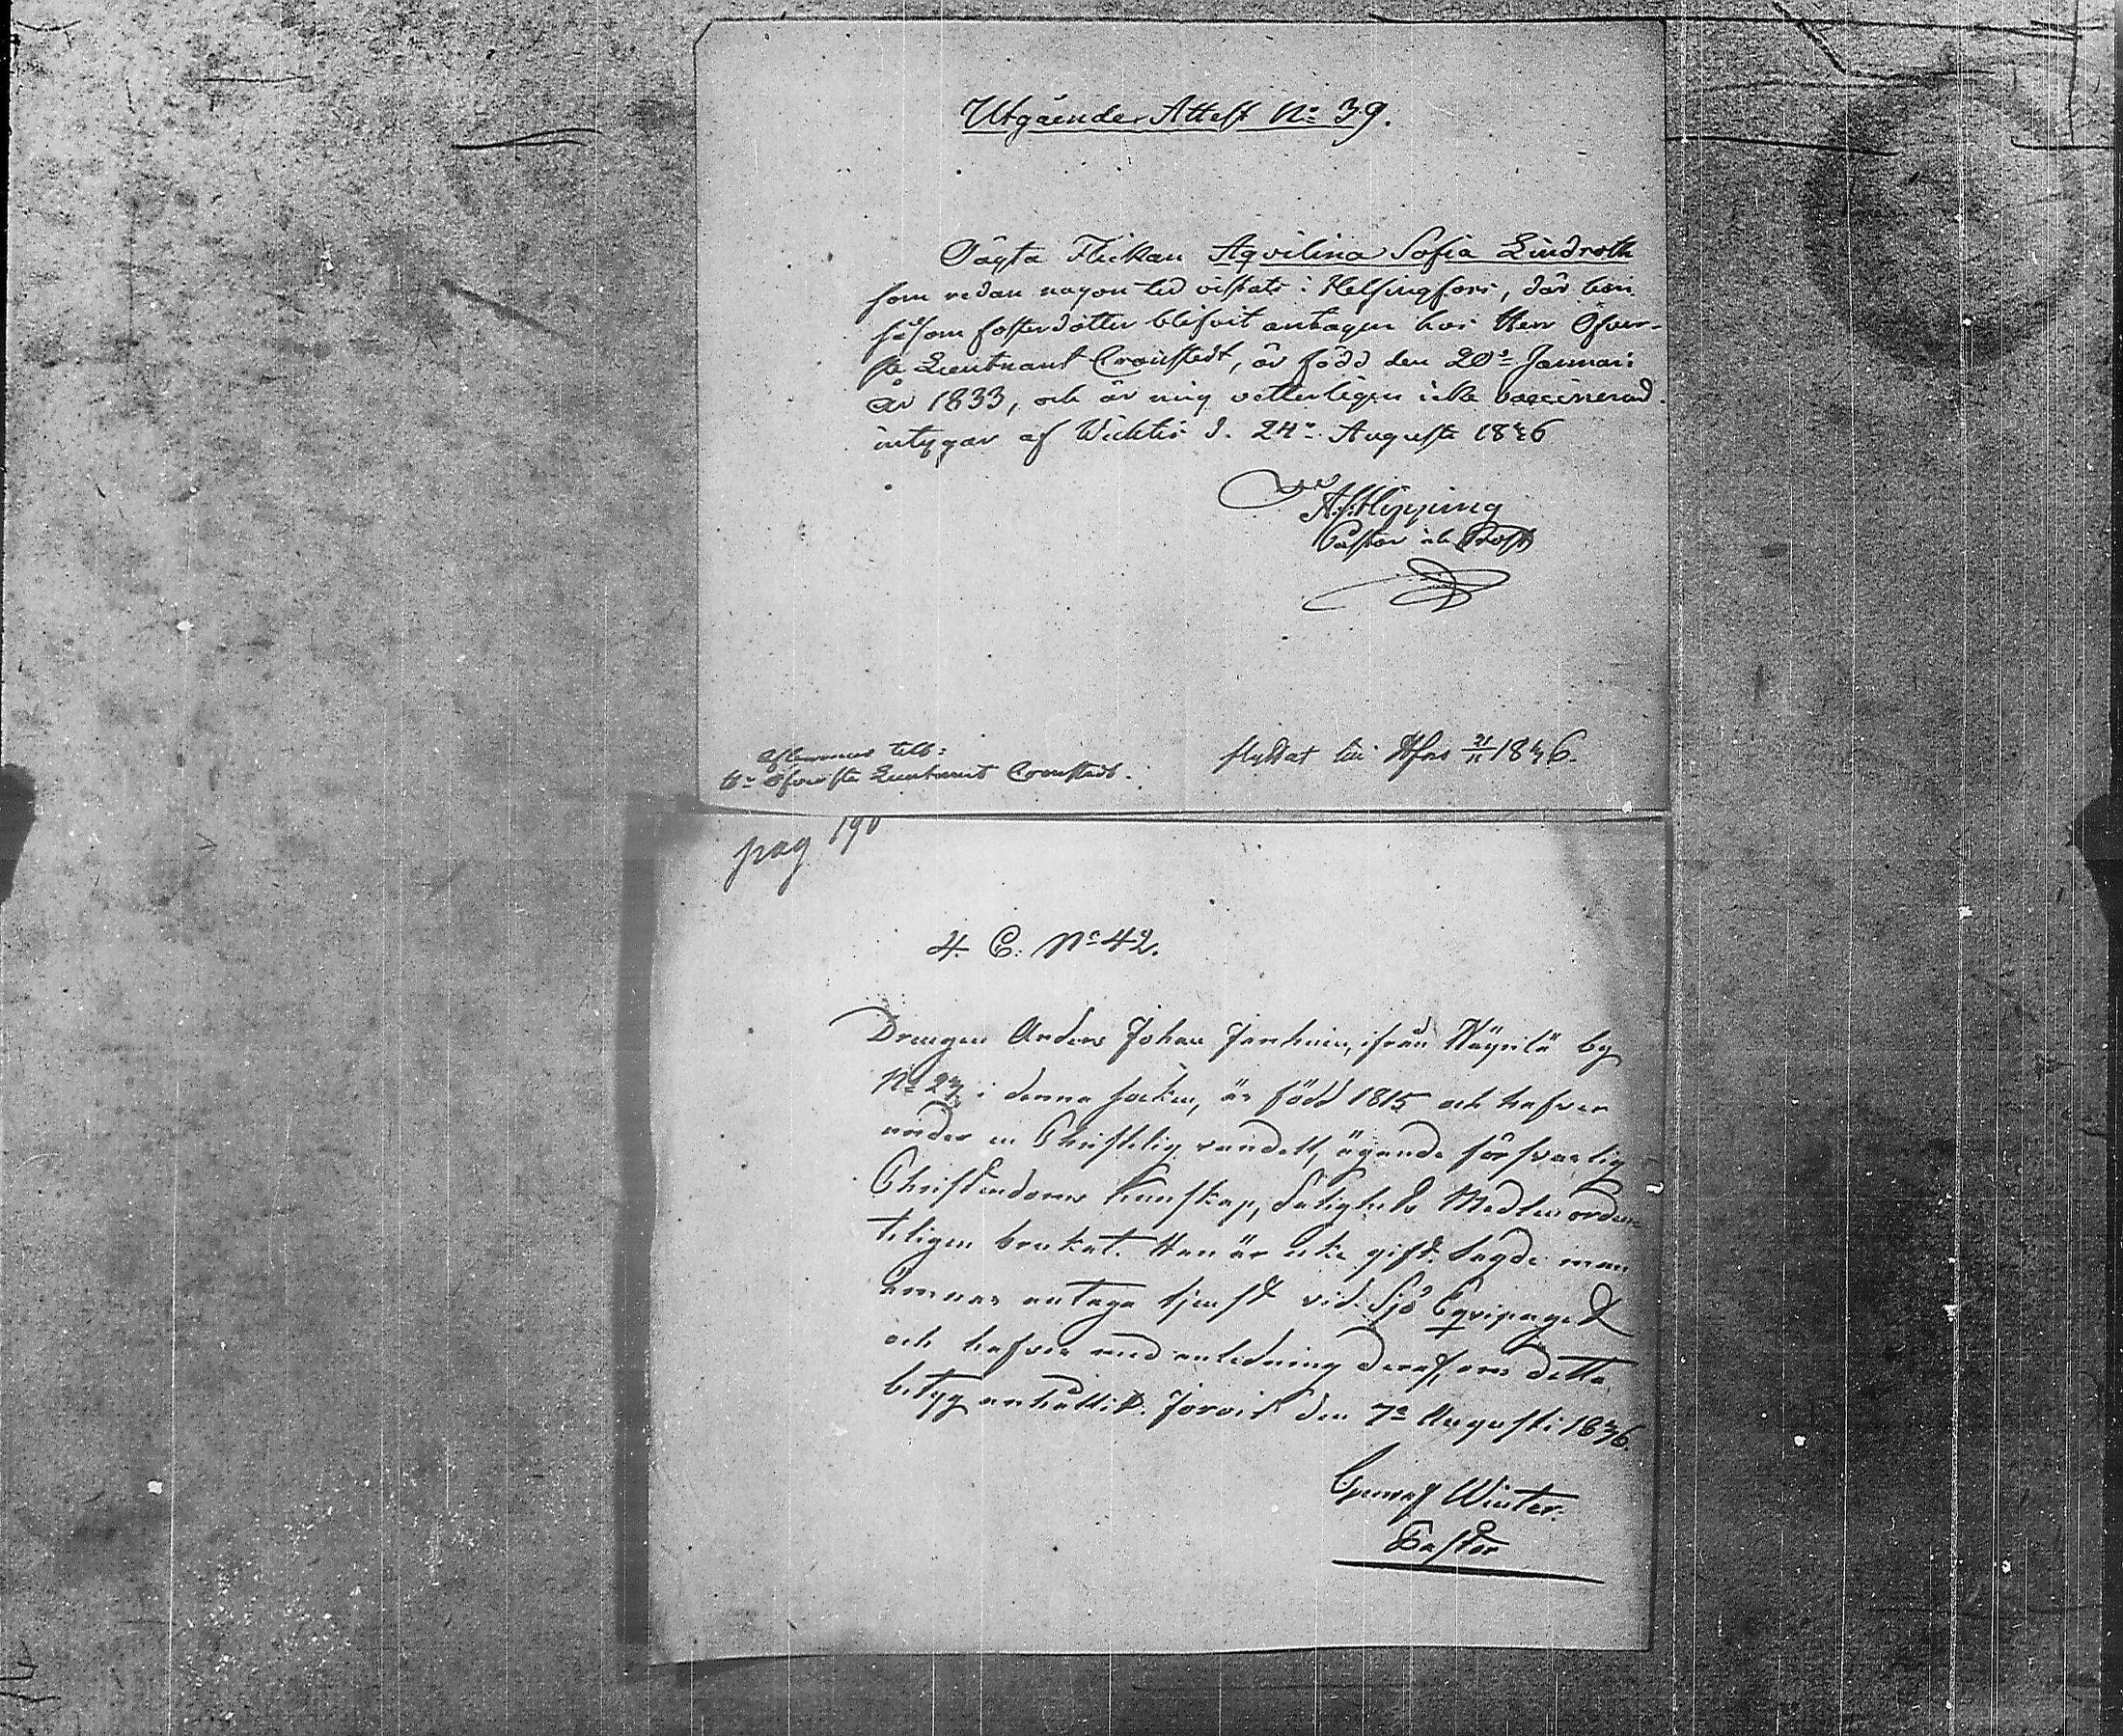 Utgående Attest No 39.
Oägta Flickan Aqvilina Sofia Lindroth
som redan någon tid vistats i Helsingfors, där hon
såsom fosterdotter blifvit antagen hos Herr Öfver-
ste Lieutnant Cronstedt, är född den 20de Januari
år 1833, och är mig vetterligen icke vaccinerad.
intygar af Wichtis d. 24de Augusti 1836
Hipping
Pastor och Prost
aflemnas till:
Hr Öfverste Lieutnant Cronstedt.
flyttat till Hfors 21/11 1836.
pag 190
4. C. No 42.
Drengen Anders Johan, ifrån Häyrilä by
No 27 i denna socken, är född 1815 och hafver
under en Christelig vandell, ägande försvarlig
Christendoms Kunskap, Salighets Medlen orden-
teligen brukat. Han är icke gift. Sagde man
ämnar antaga tjenst vid Sjö Eqvipaget
och hafver med anledning deraf, om detta
betyg anhållit. Jorois den 7de Augusti 1836.
Gustaf Winter.
Pastor